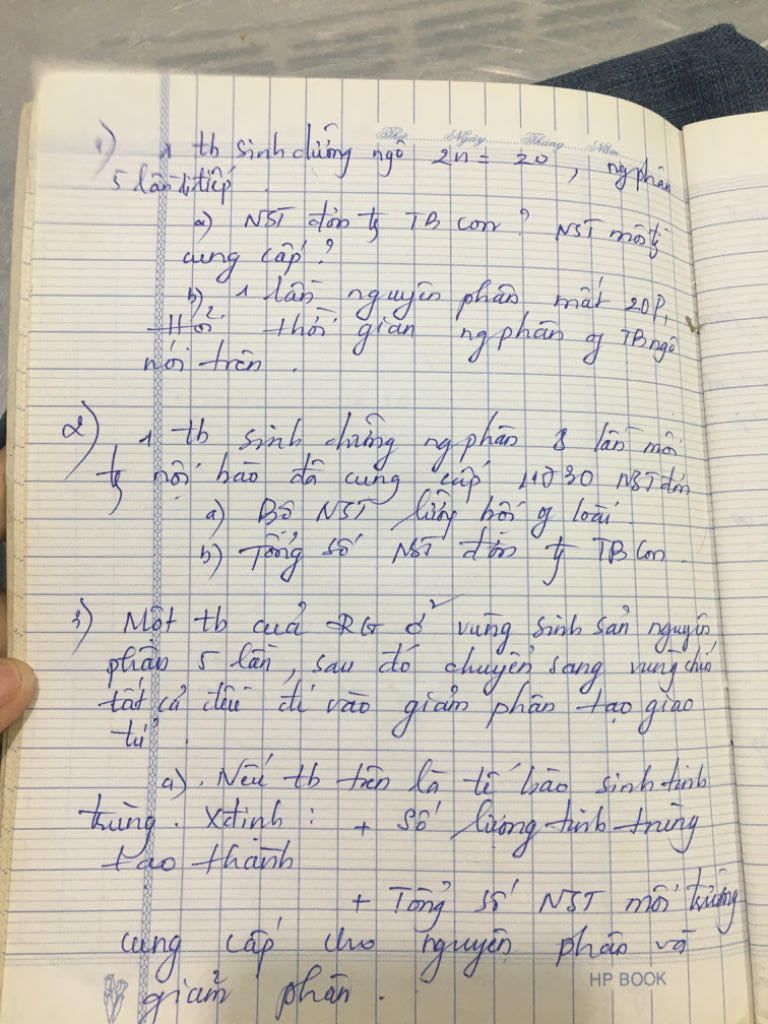 Thứ Ngày Tháng Năm
1) 1 tb sinh dưỡng ngô 2n = 20, ng phân
5 lần l.tiếp.
a) NST đơn TB con? NST môi
cung cấp?
b) 1 lần nguyên phân mất 20p,
Hỏi thời gian ng phân TB ngô
nói trên.
2) 1 tb sinh dưỡng ng phân 8 lần môi
nội bào đã cung cấp NST đơn
a) Bộ NST lưỡng bội loài.
b) Tổng số NST đơn TB con.
3) Một tb của ở vùng sinh sản nguyên
phân 5 lần, sau đó chuyển sang vùng chín
tất cả đều đi vào giảm phân tạo giao
tử.
a). Nếu tb trên là tế bào sinh tinh
trùng. Xđịnh: + Số lượng tinh trùng
tạo thành
+ Tổng số NST môi trường
cung cấp cho nguyên phân và
giảm phân.
HP BOOK